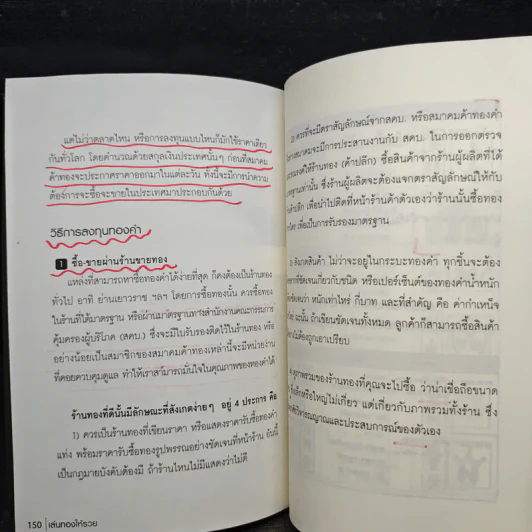 แต่ไม่ว่าตลาดไหน หรือการลงทุนแบบไหนก็มักใช้ราคาเดียว
กันทั่วโลก โดยคำนวณด้วยสกุลเงินประเทศนั้นๆ ก่อนที่สมาคม
ค้าทองจะประกาศราคาออกมาในแต่ละวัน ทั้งนี้จะมีการนำความ
ต้องการจะซื้อจะขายในประเทศมาประกอบกันด้วย
วิธีการลงทุนทองคำ
1 ซื้อ-ขายผ่านร้านขายทอง
แหล่งที่สามารถหาซื้อทองคำได้ง่ายที่สุด ก็คงต้องเป็นร้านทอง
ทั่วไป อาทิ ย่านเยาวราช ฯลฯ โดยการซื้อทองนั้น ควรซื้อทอง
ในร้านที่ได้มาตรฐาน หรือผ่านมาตรฐานทางสำนักงานคณะกรรมการ
คุ้มครองผู้บริโภค (สคบ.) ซึ่งจะมีใบรับรองติดไว้ในร้านทอง หรือ
อย่างน้อยเป็นสมาชิกของสมาคมค้าทองเหล่านี้จะมีหน่วยงาน
ที่คอยควบคุมดูแล ทำให้เราสามารถมั่นใจในคุณภาพของทองคำได้
ร้านทองที่ดีนั้นมีลักษณะที่สังเกตง่ายๆ อยู่ 4 ประการ คือ
1) ควรเป็นร้านทองที่เขียนราคา หรือแสดงราคารับซื้อทองคำ
แท่ง พร้อมราคารับซื้อทองรูปพรรณอย่างชัดเจนที่หน้าร้าน อันนี้
เป็นกฎหมายบังคับต้องมี ถ้าร้านไหนไม่มีแสดงว่าไม่ดี
150 เล่นทองให้รวย
2) ควรที่จะมีตราสัญลักษณ์จากสคบ. หรือสมาคมค้าทองคำ
สมาคมจะมีการประสานงานกับ สคบ. ในการออกตรวจ
ให้ร้านทอง (ค้าปลีก) ซื้อสินค้าจากร้านผู้ผลิตที่ได้
มาตรฐานเท่านั้น ซึ่งร้านผู้ผลิตจะต้องแจกตราสัญลักษณ์ให้กับ
เพื่อนำไปติดที่หน้าร้านค้าตัวเองว่าร้านนั้นซื้อทอง
เพื่อเป็นการรับรองมาตรฐาน
3) สังเกตสินค้า ไม่ว่าจะอยู่ในกระบะทองคำ ทุกชิ้นจะต้อง
ชัดเจนเกี่ยวกับชนิด หรือเปอร์เซ็นต์ของทองคำน้ำหนัก
ชัดเจนว่า หนักเท่าไหร่ กี่บาท และที่สำคัญ คือ ค่ากำเหน็จ
ฉะนั้น ถ้าเขียนชัดเจนทั้งหมด ลูกค้าก็สามารถซื้อสินค้า
ไม่ต้องถูกเอาเปรียบ
4) ดูภาพรวมของร้านทองที่คุณจะไปซื้อ ว่าน่าเชื่อถือขนาด
เล็กหรือใหญ่ไม่เกี่ยว แต่เกี่ยวกับภาพรวมทั้งร้าน ซึ่ง
วิจารณญาณและประสบการณ์ของตัวเอง